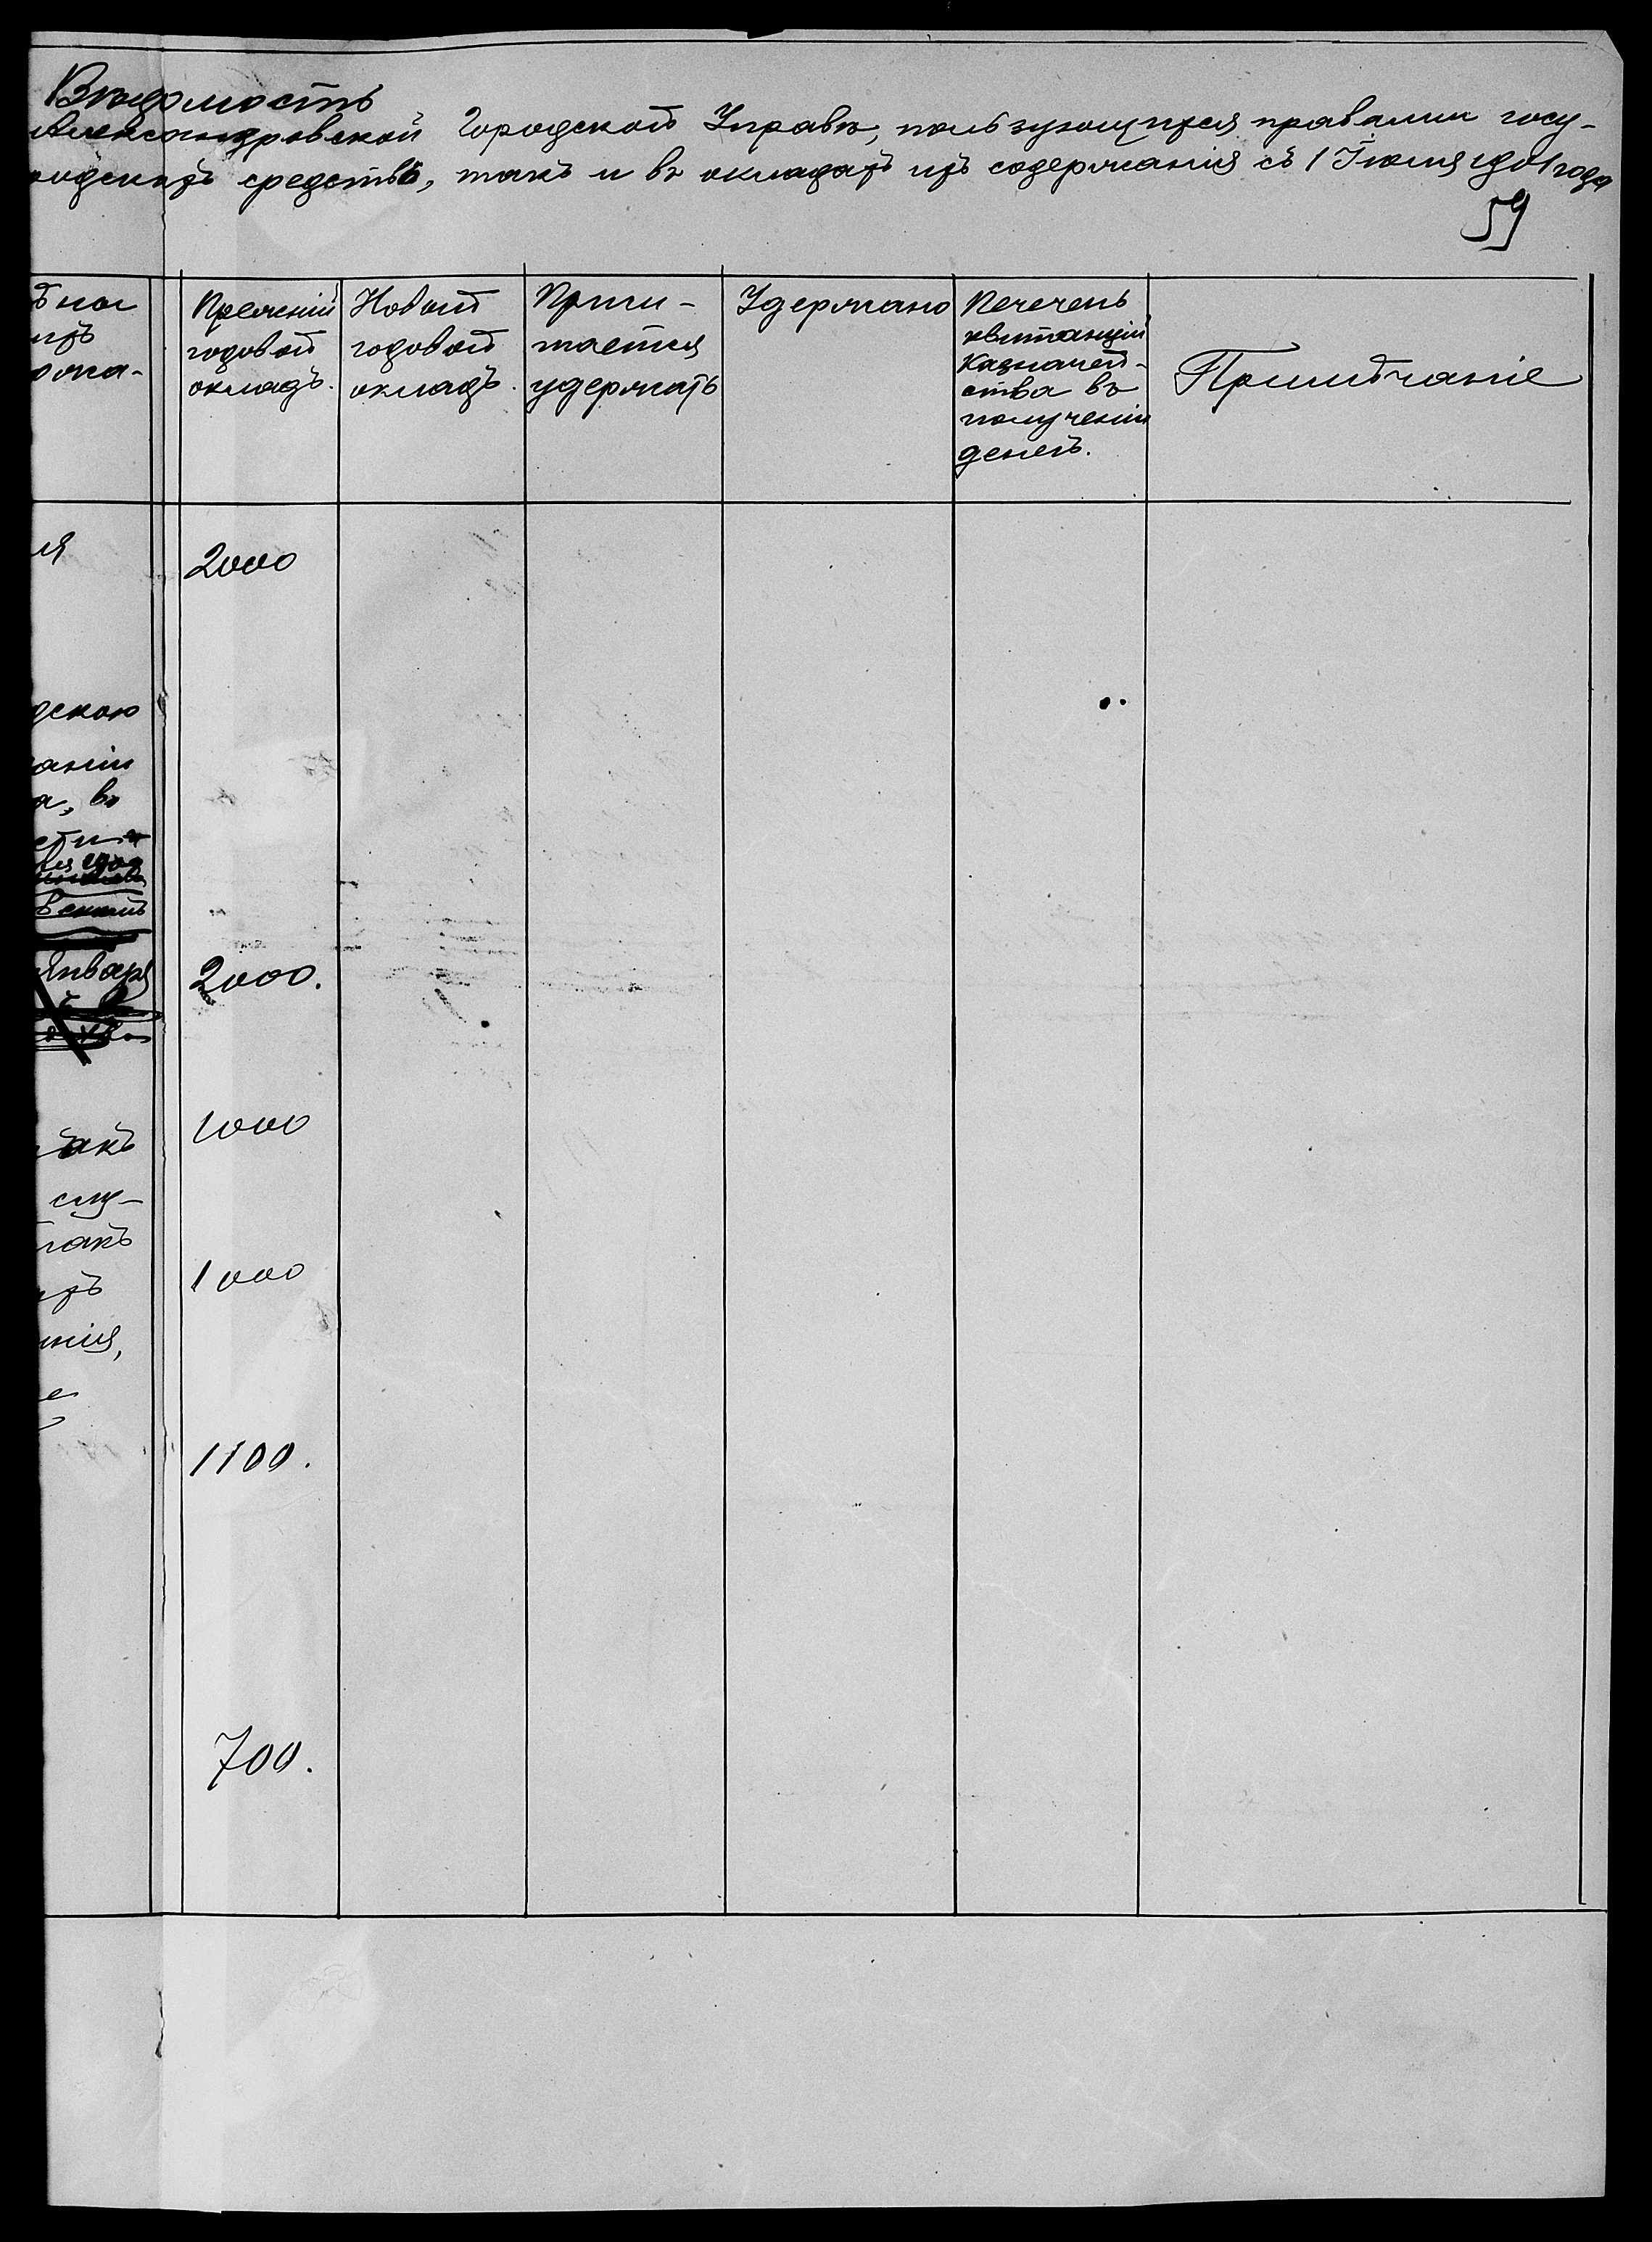 Вѣдомость
Александровской Городской Управѣ, пользующихся правами госу-
родскихъ средствъ, такъ и въ окладахъ ихъ содержанія съ 1 Іюля 1901 года
59
Прежній
годовой
окладъ.
Новый
годовой
окладъ.
Причи-
тается
удержать
Удержано
Печень
квитанціи
Казначей-
ства въ
полученіи
денегъ.
Примѣчаніе
ля
2000
дскою
аніи
а, въ
Января
2000.
1000
акъ
слу-
такъ
1000
нія,
1100.
700.